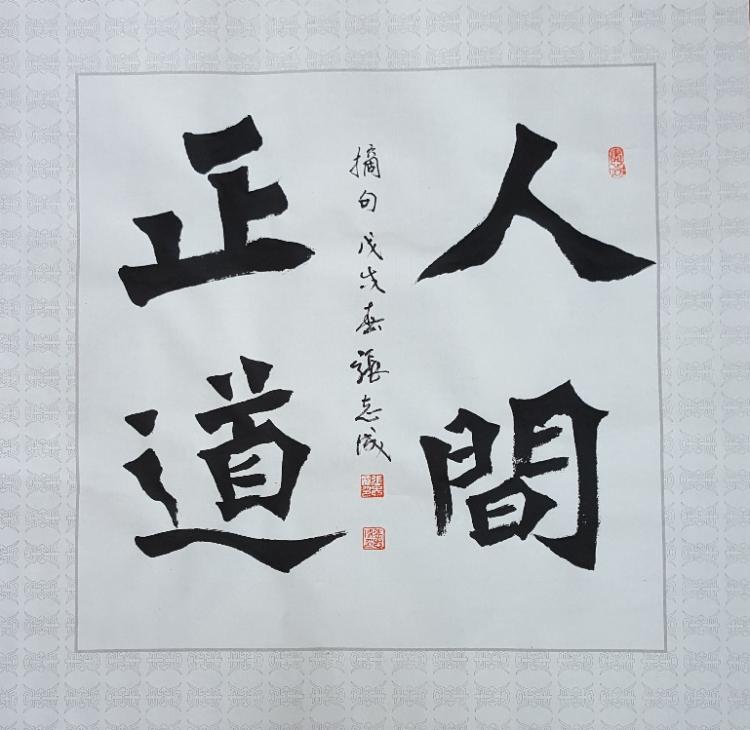 人間
正道
摘句戊戌春張志成